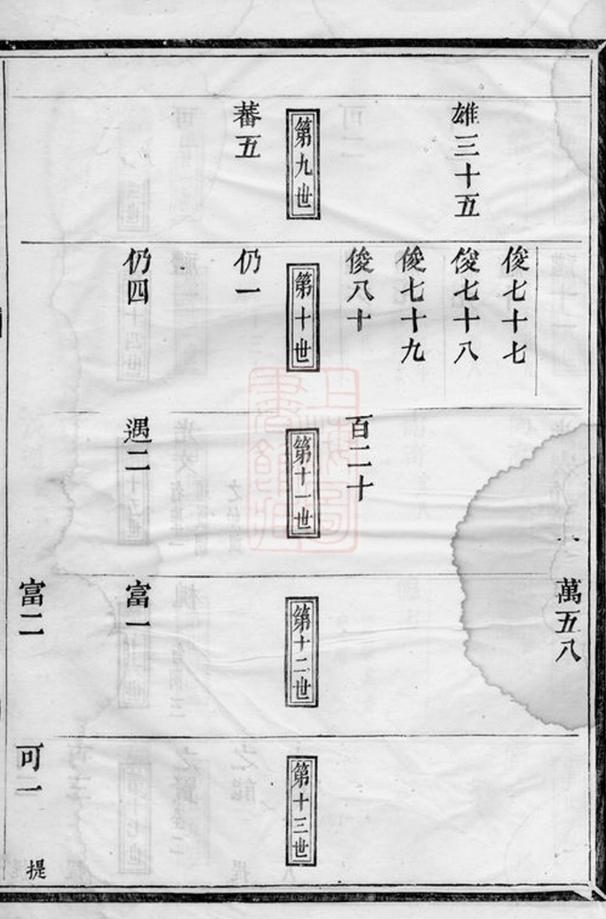 雄三十五
第九世
蕃五
俊七十七
俊七十八
俊七十九
俊八十
第十世
仍一
仍四
百二十
第十一世
遇二
萬五八
第十二世
富一
富二
第十三世
可一
提
上海圖
書館藏